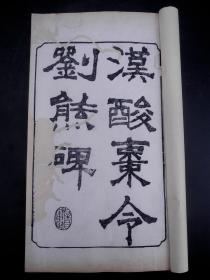 漢酸棗令
劉熊碑